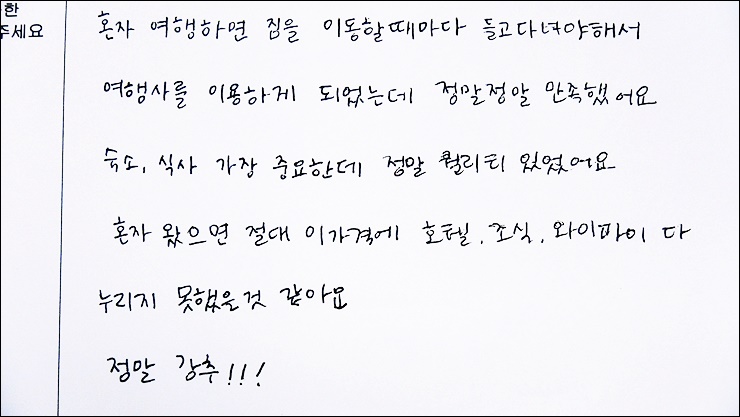 한
주세요
혼자 여행하면 짐을 이동할때마다 들고다녀야해서
여행사를 이용하게 되었는데 정말정말 만족했어요
숙소, 식사 가장 중요한데 정말 퀄리티 있었어요
혼자 왔으면 절대 이가격에 호텔, 조식, 와이파이 다
누리지 못했을것 같아요
정말 강추!!!